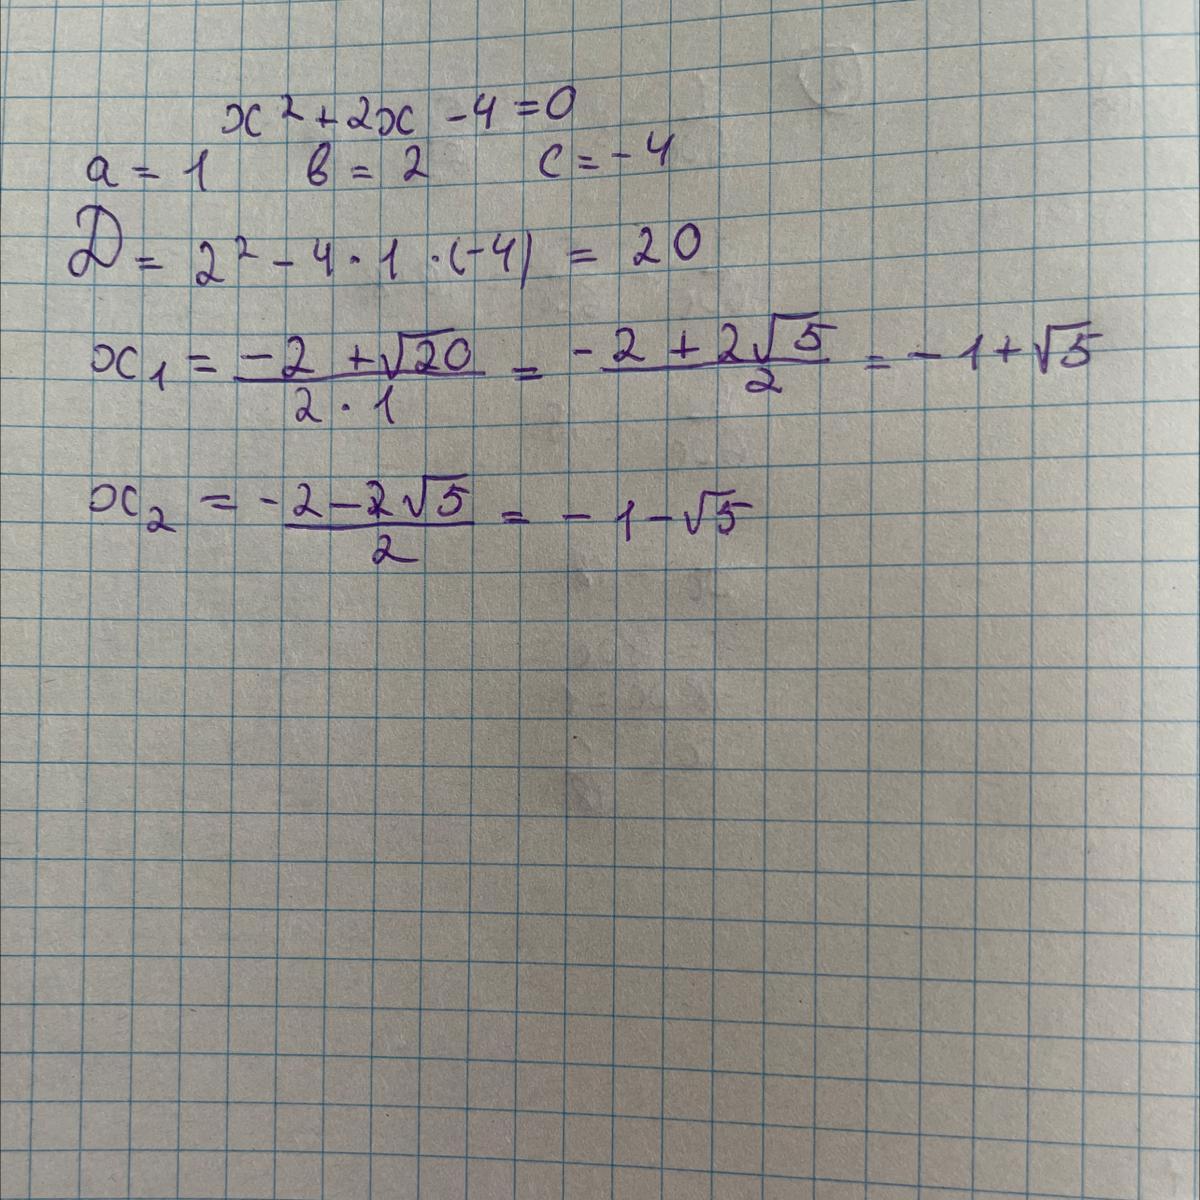 x² + 2x - 4 = 0
a = 1 b = 2 c = -4
D = 2² - 4 · 1 · (-4) = 20
x₁ = (-2 + √20)/(2 · 1) = (-2 + 2√5)/2 = -1 + √5
x₂ = (-2 - 2√5)/2 = -1 - √5